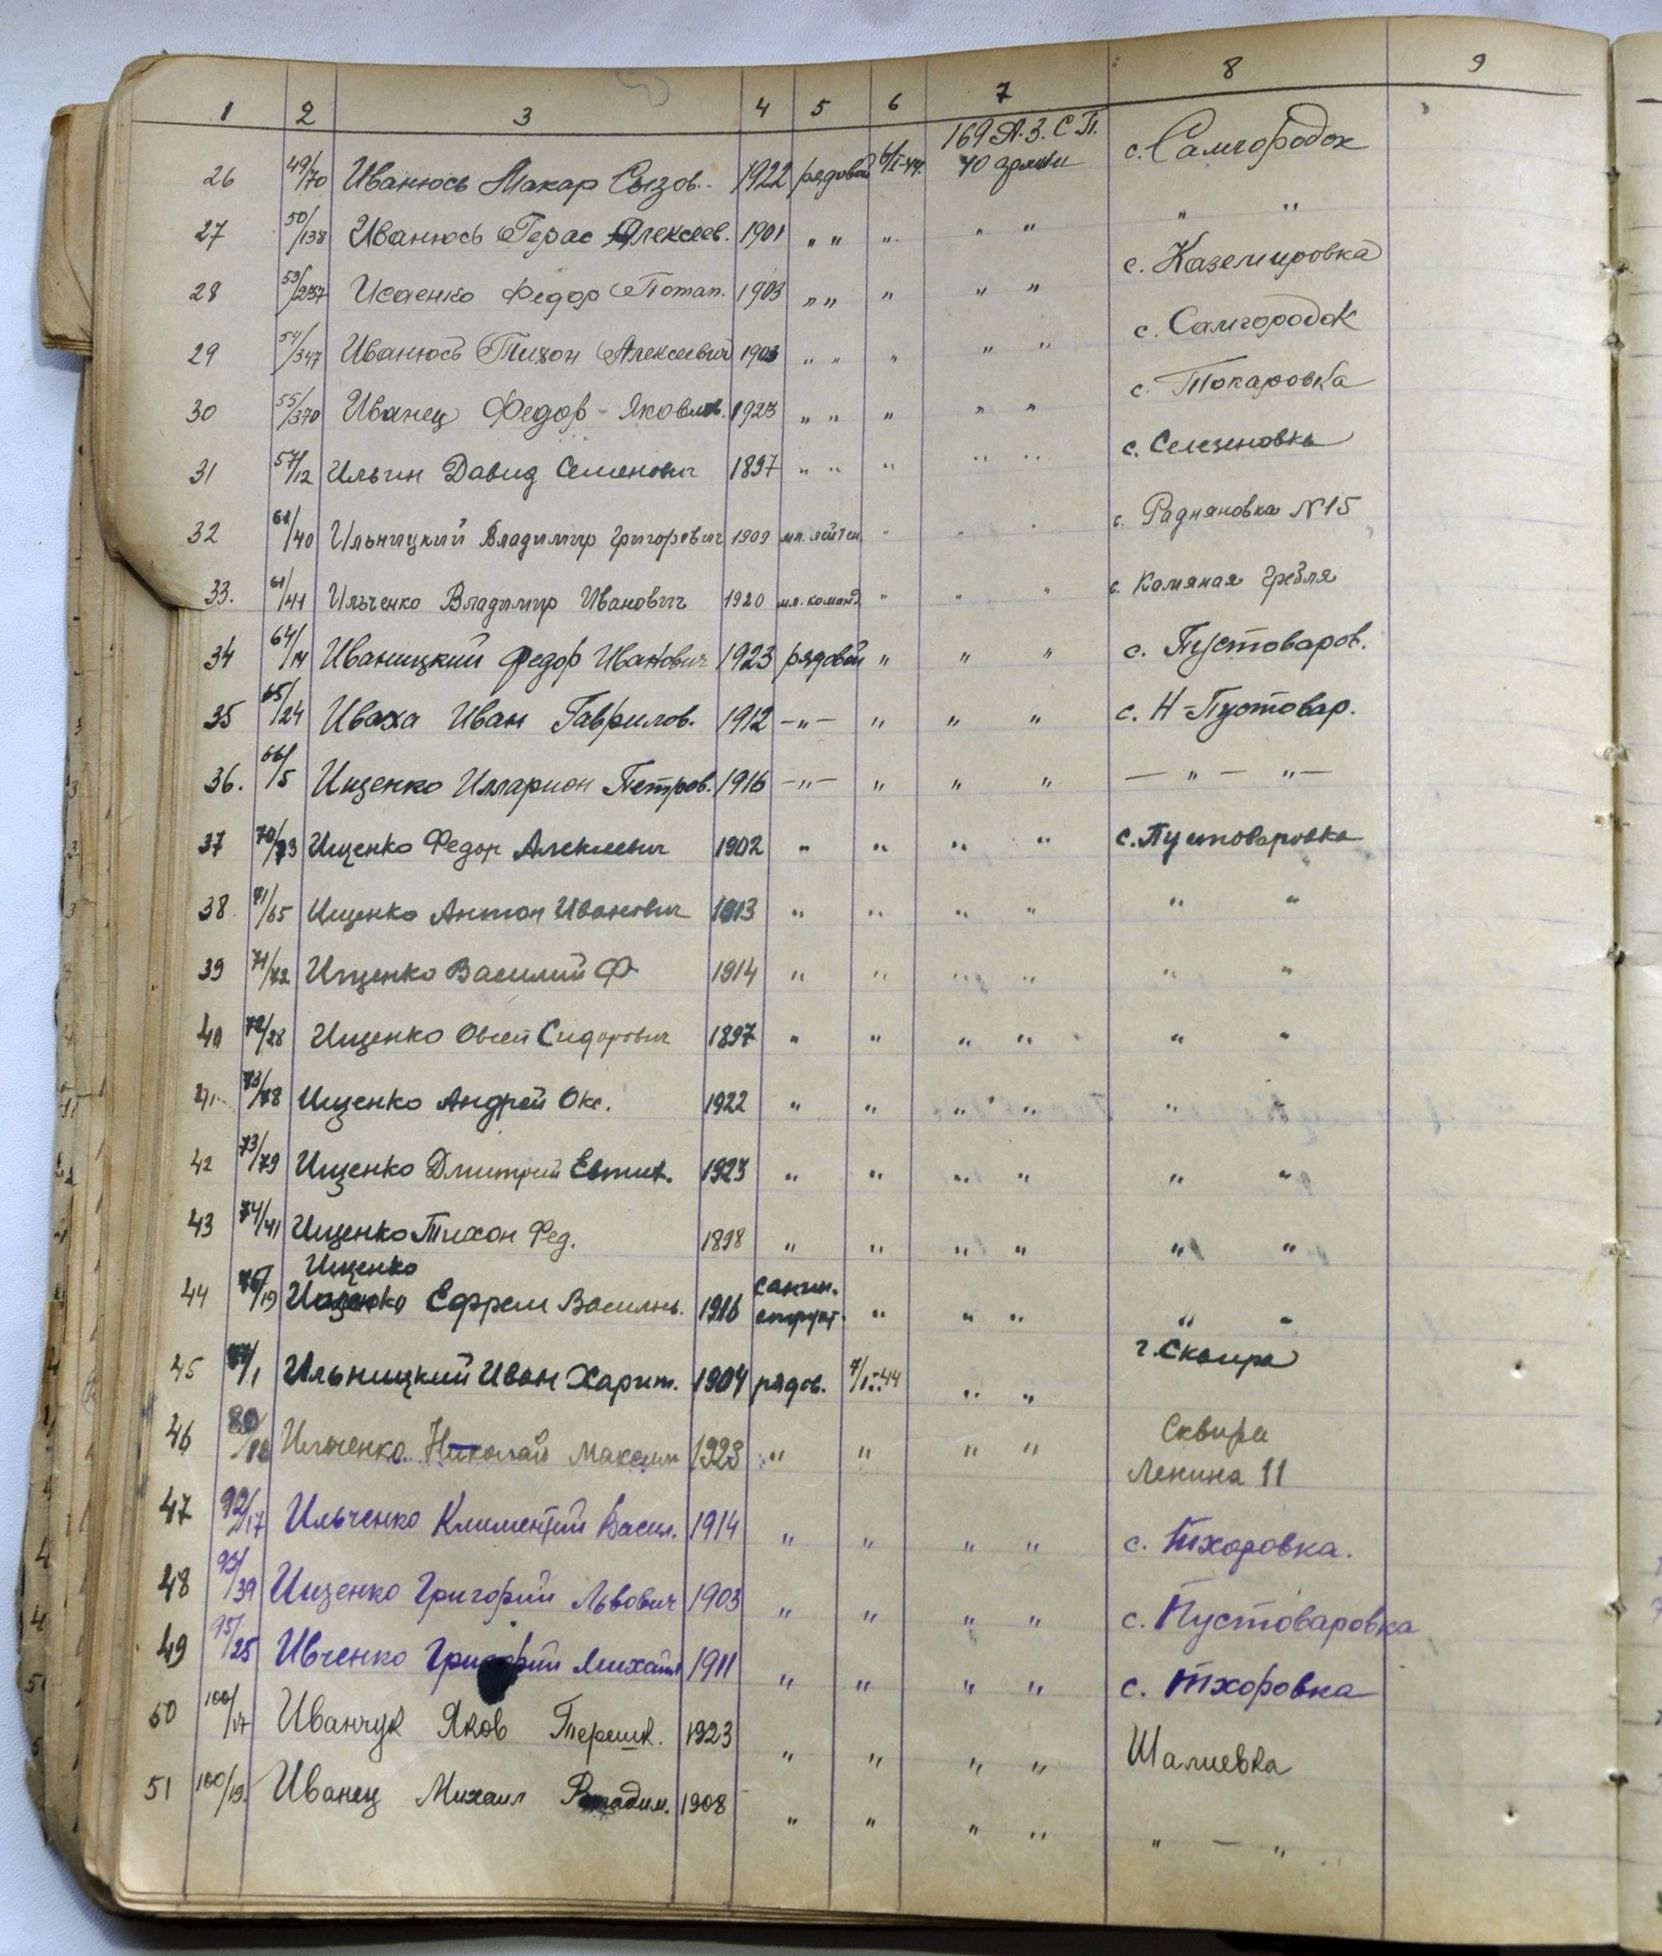 1 2 3 4 5 6 7 8 9
26 49/70 Иванюсь Макар Сызов. 1922 рядовой 6/I-44. 169 А.З.С.П. 40 армии с. Самгородок
27 50/138 Иванюсь Герас Алексеев. 1901 " " " " " " "
28 53/237 Исаенко Федор Потап. 1903 " " " " " с. Каземировка
29 54/347 Иванюсь Тихон Алексеевич 1903 " " " " " с. Самгородок
30 55/370 Иванец Федор - Яковлев. 1923 " " " " " с. Токаровка
31 57/12 Ильин Давид Семенович 1897 " " " " " с. Селезеновка
32 61/40 Ильницкий Владимир Григорович 1909 мл. лейтен. " " " с. Радняновка N15
33. 61/41 Ильченко Владимир Иванович 1920 мл. команд " " " с. Камяная Гребля
34 64/14 Иваницкий Федор Иванович 1923 рядовой " " " с. Пустоваров.
35 65/24 Иваха Иван Гаврилов. 1912 -"- " " " с. Н-Пустовар.
36. 66/5 Ищенко Илларион Петров. 1916 -"- " " " — " — " —
37 70/73 Ищенко Федор Алексеевич 1902 " " " " с. Пустоваровка
38 71/65 Ищенко Антон Иванович 1913 " " " " " "
39 71/72 Ищенко Василий Ф 1914 " " " " " "
40 72/28 Ищенко Овсей Сидорович 1897 " " " " " "
41 73/78 Ищенко Андрей Окс. 1922 " " " " " "
42 73/79 Ищенко Дмитрий Евтих. 1923 " " " " " "
43 74/41 Ищенко Тихон Фед. 1898 " " " " " "
Ищенко санин.
44 76/19 Ефрем Васильь. 1916 структ. " " " " "
45 /1 Ильницкий Иван Харит. 1904 рядов. 7/I-44 " " г. Сквира
46 80/18 Ильченко Николай Максим 1923 " " " " Сквира
Ленина 11
47 92/17 Ильченко Климентий Васил. 1914 " " " " с. Тхоровка.
48 93/39 Ищенко Григорий Львович 1903 " " " " с. Пустоваровка
49 95/25 Ивченко Григорий Михайл 1911 " " " " с. Тхоровка
50 100/17 Иванчук Яков Терешк. 1923 " " " " Шалиевка
51 100/19. Иванец Михаил Владим. 1908 " " " " " — "